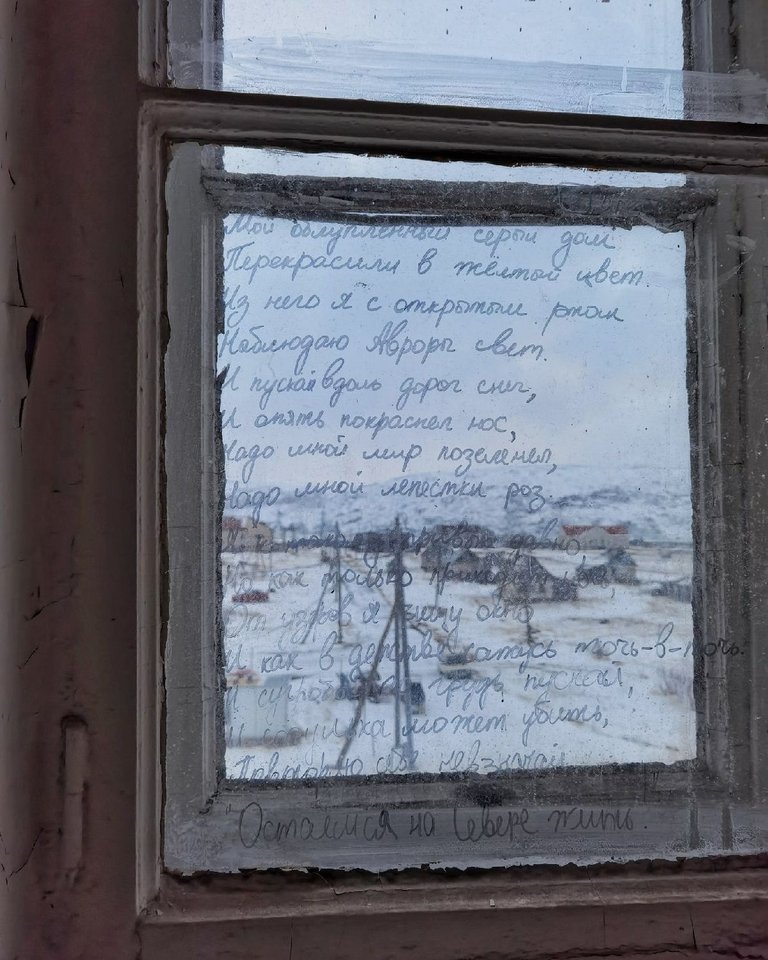 Мой облупленный серый дом
Перекрасили в жёлтый цвет.
Из него я с открытым ртом
Наблюдаю Авроры свет.
И пускай вдоль дорог снег,
И опять покраснел нос,
Надо мной мир позеленел,
Надо мной лепестки роз.
давно
Но как только приходит
От узров я окно
И как в детстве катусь точь-в-точь.
И грудь пускай,
И может убить,
Повторяю себе невзначай
"Остаться на Севере жить."